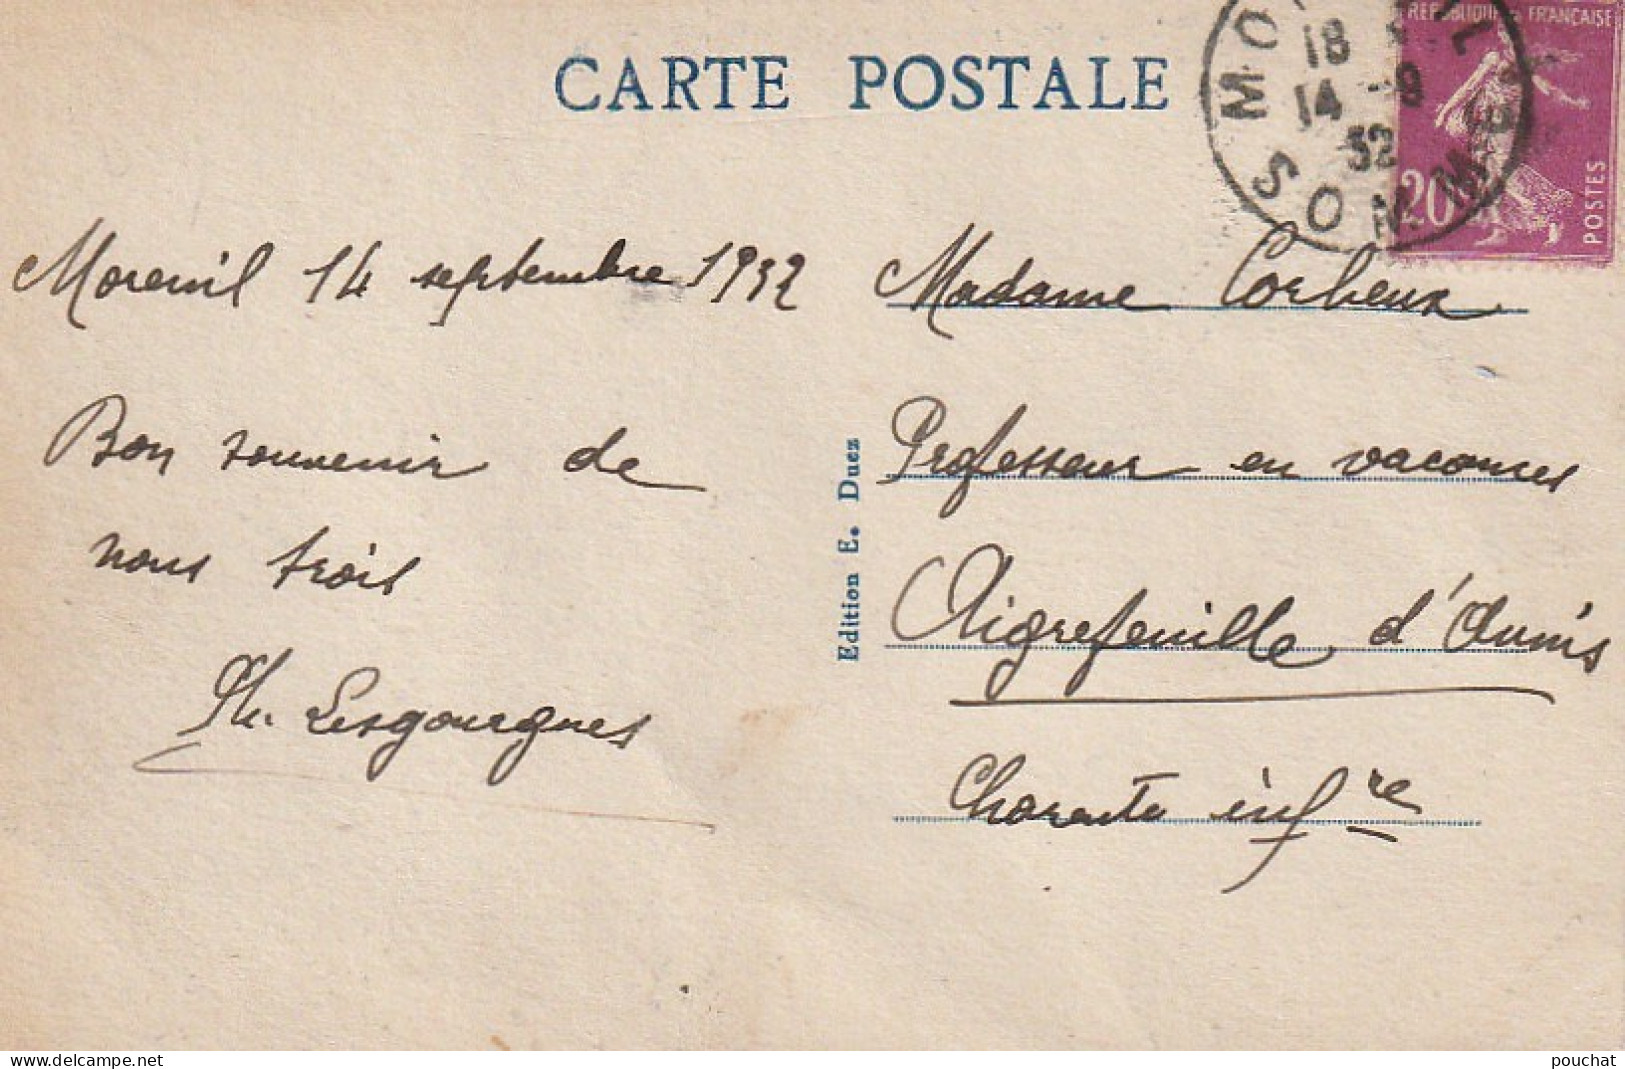 CARTE POSTALE
18
14 -9
32
SOMME
REPUBLIQUE FRANCAISE
20
POSTES
Moreuil 14 septembre 1932
Bon souvenir de
nous trois
Ph. Lesgourgues
Edition E. Duez
Madame Corbeux
Professeur en vacances
Aigrefeuille d'Aunis
Charente infre
www.delcampe.net
pouchat